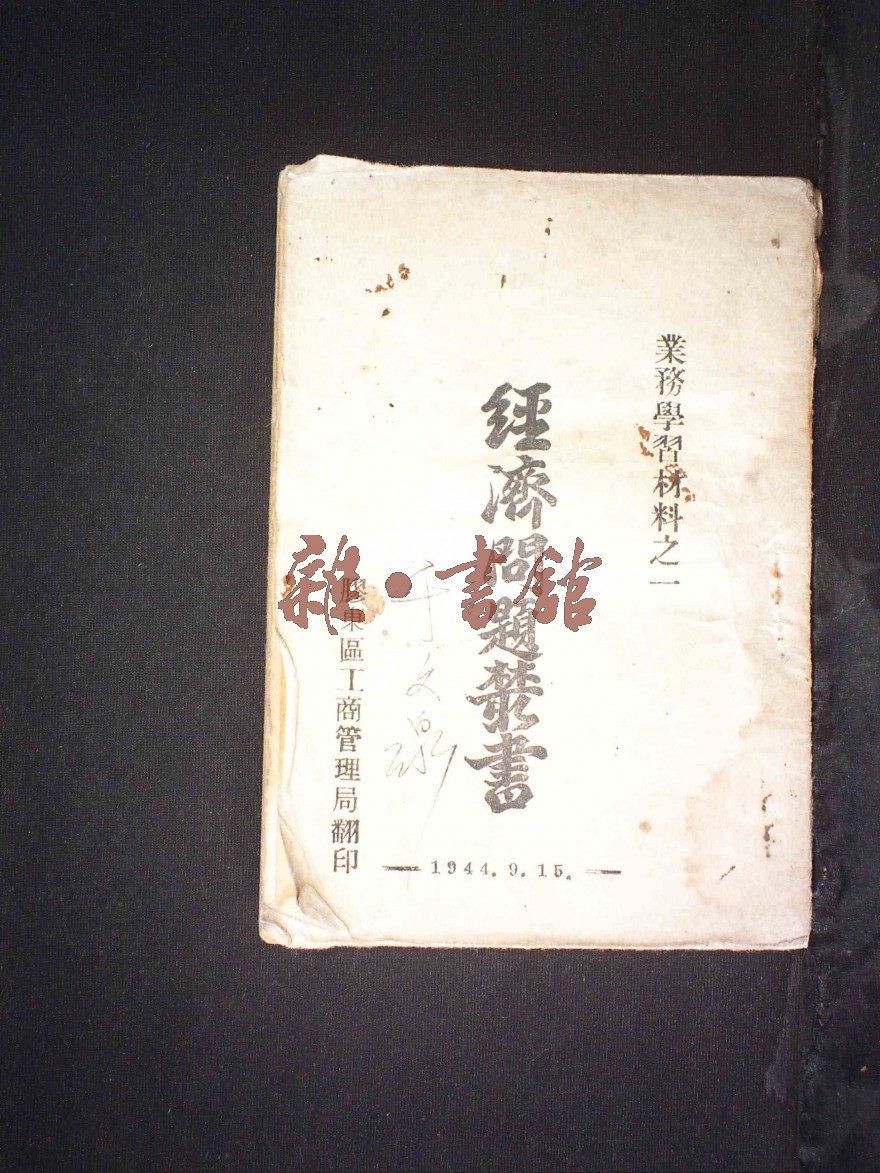 業務學習材料之一
經濟問題叢書
于文泉
膠東區工商管理局翻印
1944.9.15.
雜·書館